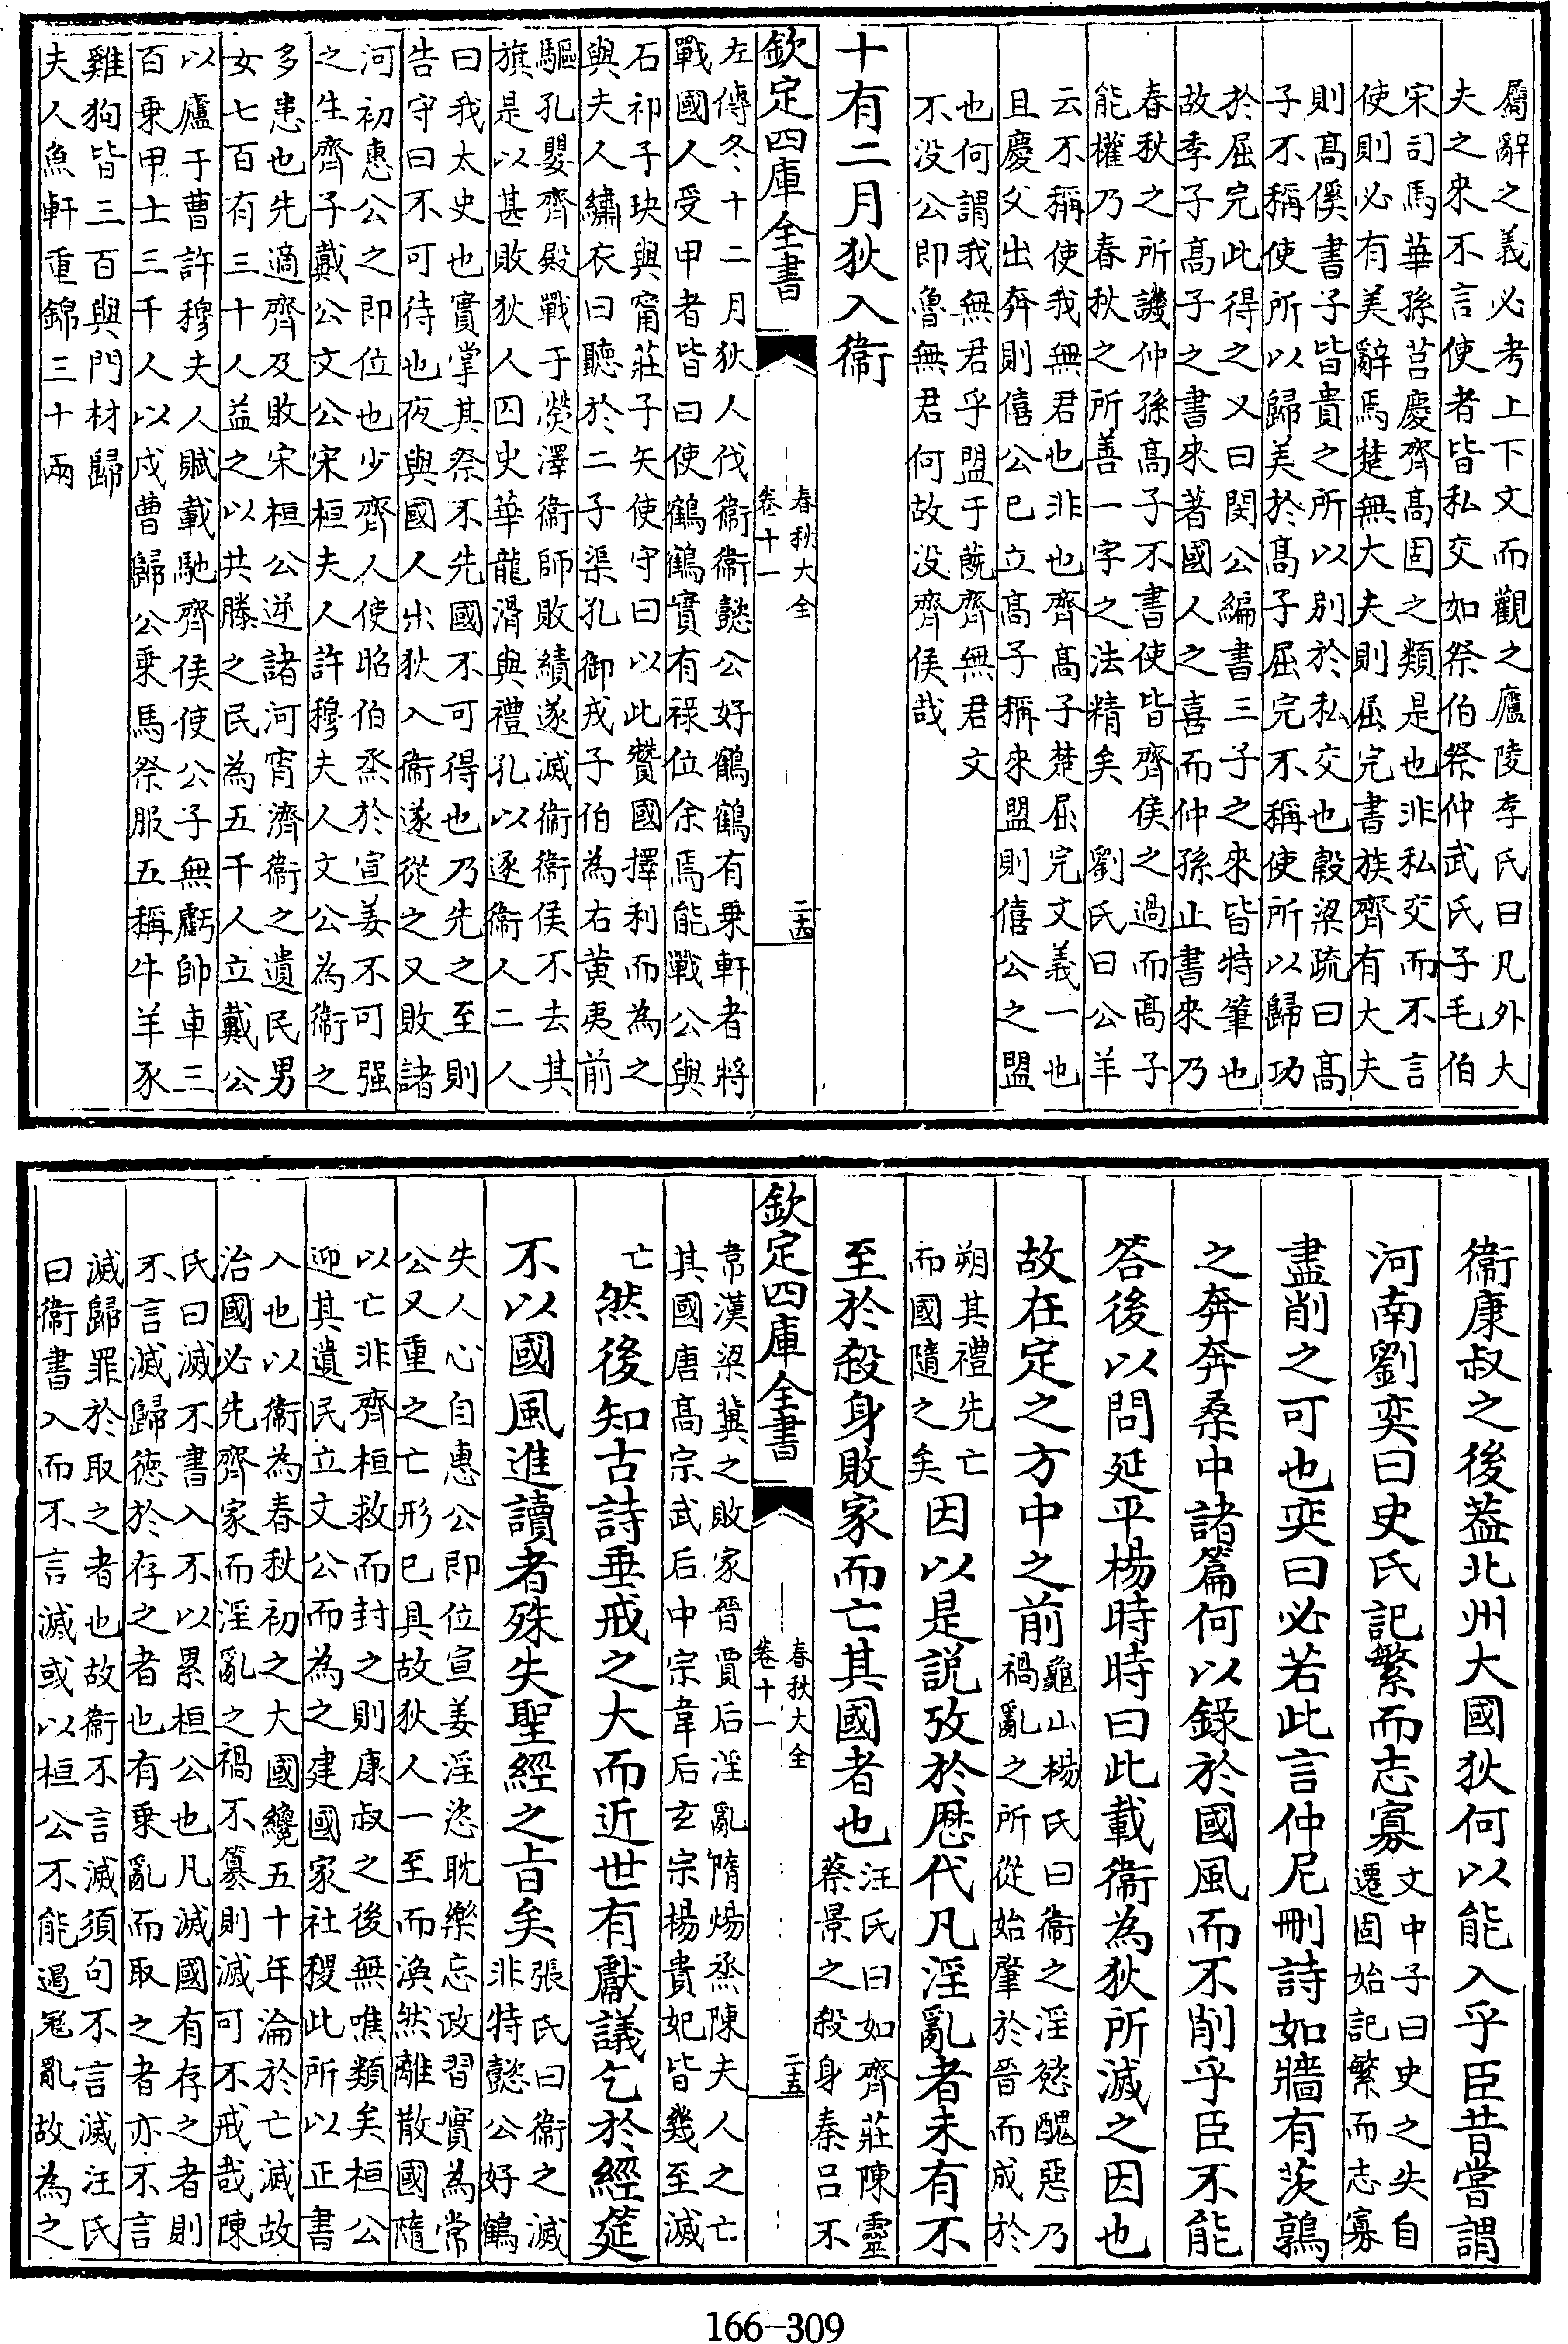 屬辭之義必考上下文而觀之廬陵李氏曰凡外大
夫之來不言使者皆私交如祭伯祭仲武氏子毛伯
宋司馬華孫莒慶齊高固之類是也非私交而不言
使則必有美辭焉楚無大夫則屈完書族齊有大夫
則高傒書子皆貴之所以别於私交也榖梁疏曰高
子不稱使所以歸美於高子屈完不稱使所以歸功
於屈完此得之又曰閔公編書三子之來皆特筆也
故季子高子之書來著國人之喜而仲孫止書來乃
春秋之所譏仲孫高子不書使皆齊侯之過而高子
能權乃春秋之所善一字之法精矣 劉氏曰公羊
云不稱使我無君也非也齊高子楚屈完文義一也
且慶父出奔則僖公已立高子稱來盟則僖公之盟
也何謂我無君乎盟于蔇齊無君文
不没公即魯無君何故没齊侯哉
十有二月狄入衛
欽定四庫全書
春秋大全
卷十一
二十四
左傳冬十二月狄人伐衛衛懿公好鶴鶴有乗軒者將
戰國人受甲者皆曰使鶴鶴實有祿位余焉能戰公與
石祁子玦與甯莊子矢使守曰以此贊國擇利而為之
與夫人繡衣曰聽於二子渠孔御戎子伯為右黄夷前
驅孔嬰齊殿戰于熒澤衛師敗績遂滅衛衛侯不去其
旗是以甚敗狄人囚史華龍滑與禮孔以逐衛人二人
曰我太史也實掌其祭不先國不可得也乃先之至則
告守曰不可待也夜與國人出狄入衛遂從之又敗諸
河初惠公之即位也少齊人使昭伯烝於宣姜不可强
之生齊子戴公文公宋桓夫人許穆夫人文公為衛之
多患也先適齊及敗宋桓公逆諸河宵濟衛之遺民男
女七百有三十人益之以共滕之民為五千人立戴公
以廬于曹許穆夫人賦載馳齊侯使公子無虧帥車三
百乗甲士三千人以戍曹歸公乗馬祭服五稱牛羊豕
雞狗皆三百與門材歸
夫人魚軒重錦三十兩
衛康叔之後葢北州大國狄何以能入乎臣昔嘗謂
河南劉奕曰史氏記繁而志寡
文中子曰史之失自
遷固始記繁而志寡
盡削之可也奕曰必若此言仲尼刪詩如牆有茨鶉
之奔奔桑中諸篇何以錄於國風而不削乎臣不能
答後以問延平楊時時曰此載衛為狄所滅之因也
故在定之方中之前
龜山楊氏曰衛之淫慾醜惡乃
禍亂之所從始肇於晉而成於
朔其禮先亡
而國隨之矣
因以是説攷於歷代凡淫亂者未有不
至於殺身敗家而亡其國者也
汪氏曰如齊莊陳靈
蔡景之殺身秦吕不
欽定四庫全書
春秋大全
卷十一
二十五
韋漢梁冀之敗家晉賈后淫亂隋煬烝陳夫人之亡
其國唐高宗武后中宗韋后玄宗楊貴妃皆幾至滅
亡
然後知古詩垂戒之大而近世有獻議乞於經筵
不以國風進讀者殊失聖經之旨矣
張氏曰衛之滅
非特懿公好鶴
失人心自惠公即位宣姜淫恣耽樂忘政習實為常
公又重之亡形已具故狄人一至而渙然離散國隨
以亡非齊桓救而封之則康叔之後無噍類矣桓公
迎其遺民立文公而為之建國家社稷此所以正書
入也以衛為春秋初之大國纔五十年淪於亡滅故
治國必先齊家而淫亂之禍不簒則滅可不戒哉陳
氏曰滅不書入不以累桓公也凡滅國有存之者則
不言滅歸德於存之者也有乗亂而取之者亦不言
滅歸罪於取之者也故衛不言滅須句不言滅汪氏
曰衛書入而不言滅或以桓公不能遏冦亂故為之
166-309